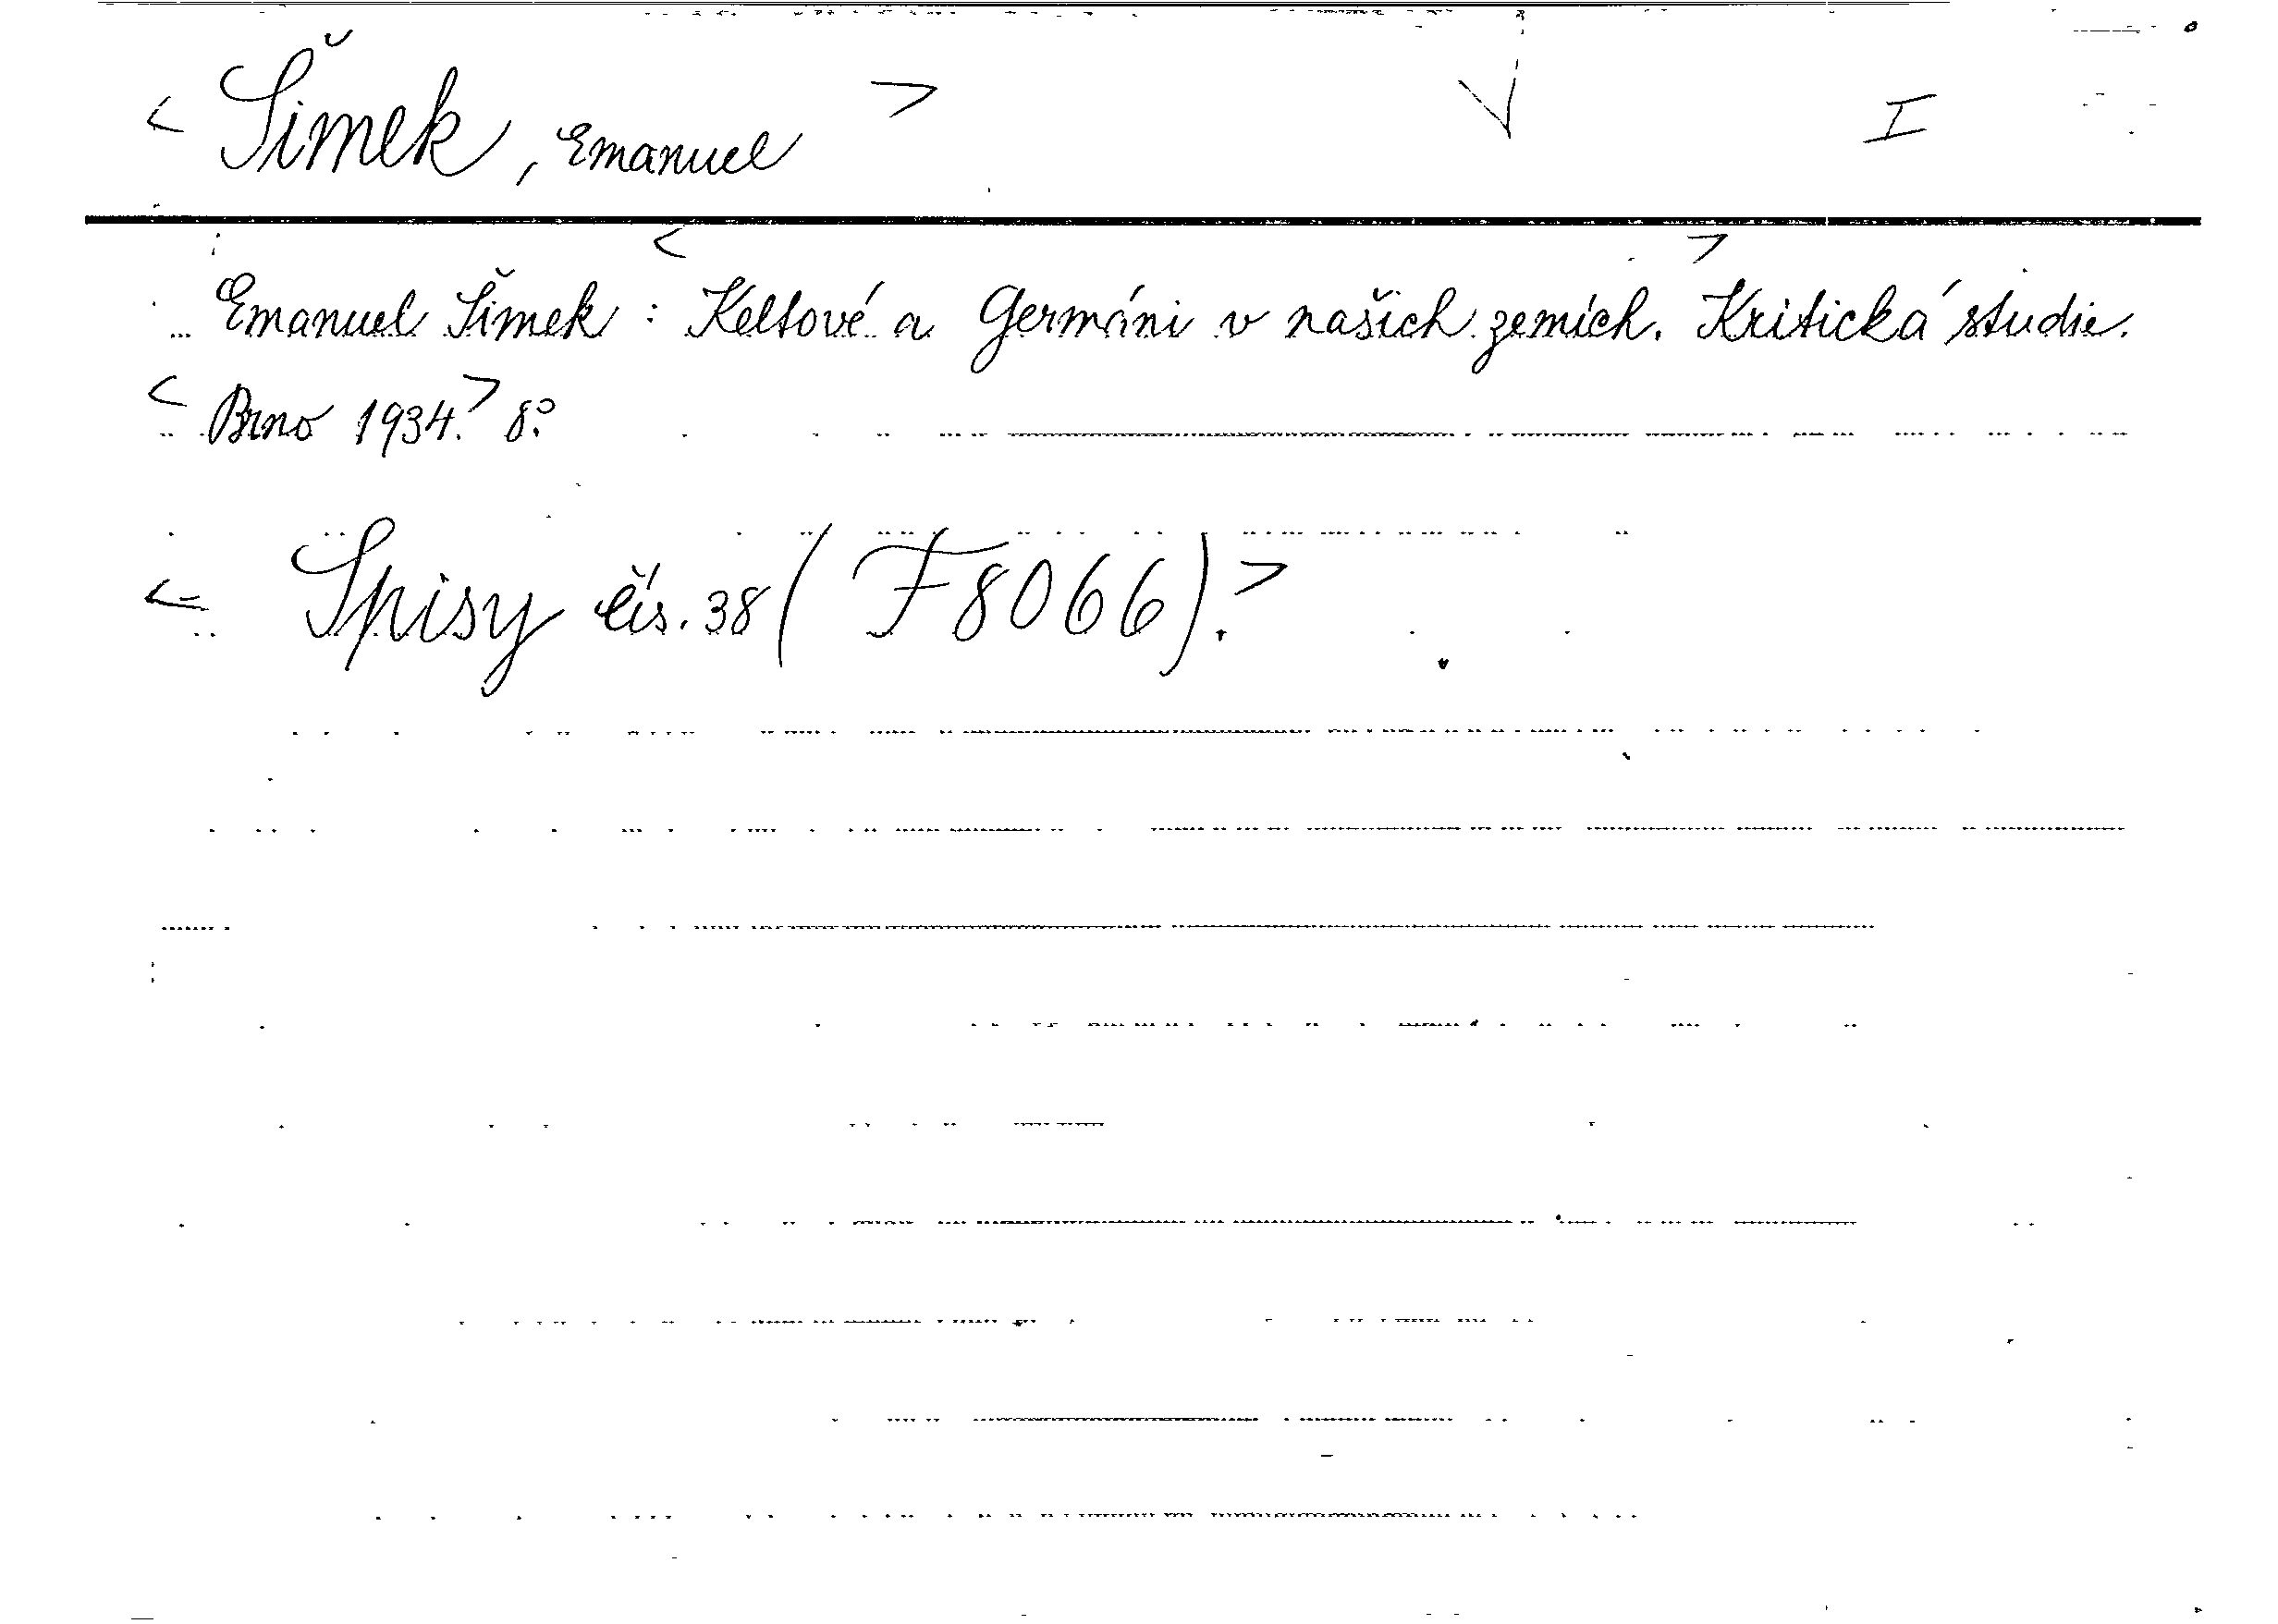 < Šimek, Emanuel > V I
Emanuel Šimek: < Keltové a Germáni v našich zemích. > Kritická studie.
< Brno 1934. > 8°.
< Spisy čís. 38 (F 8066). >